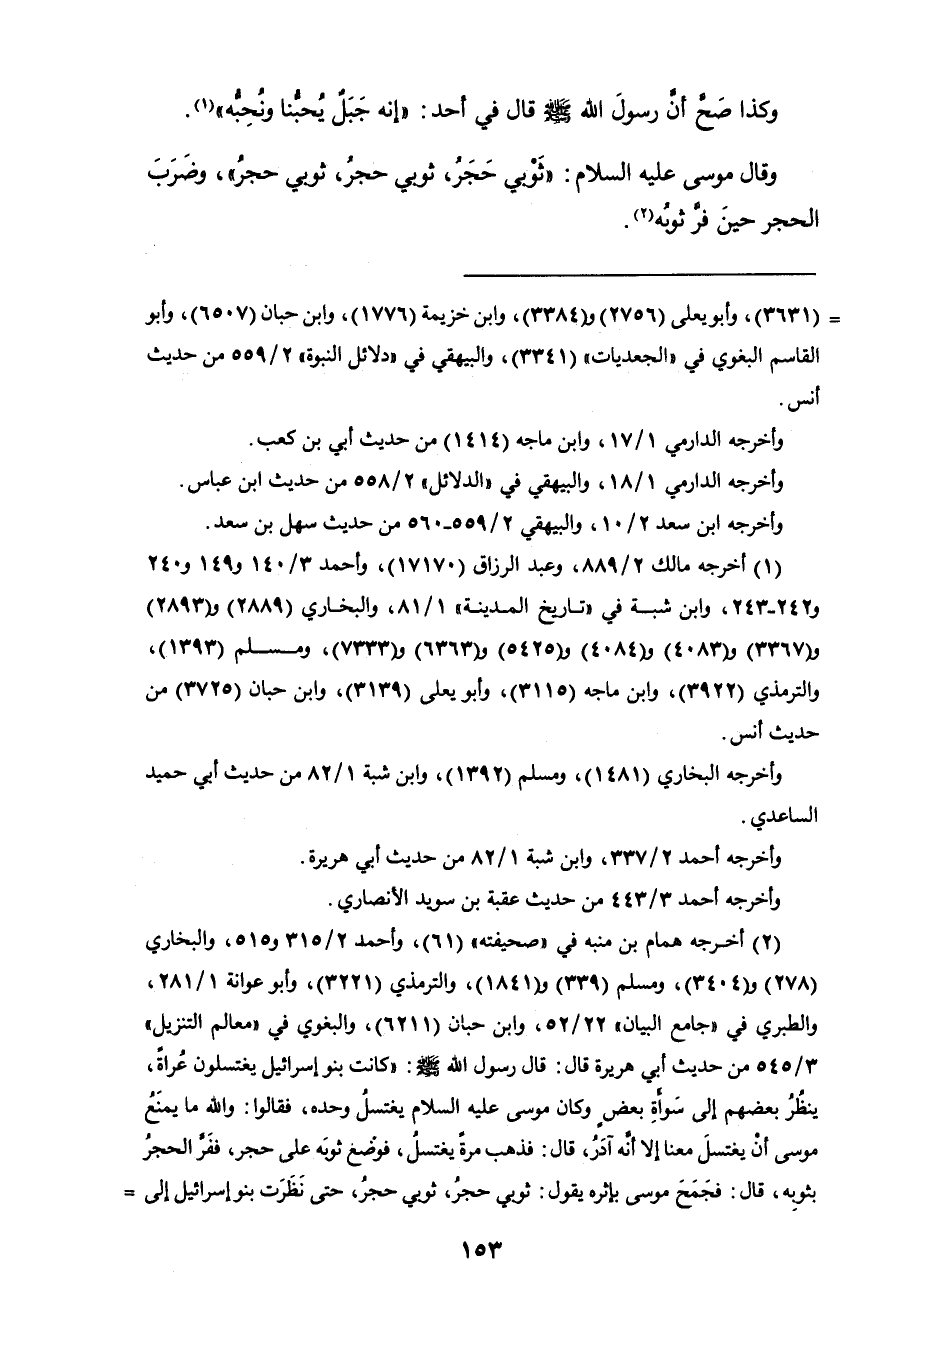 وكذا صَحَّ أنَّ رسولَ الله ﷺ قال في أحد: «إنه جَبَلٌ يُحبُّنا ونُحِبُّه»(١).
وقال موسى عليه السلام: «ثَوْبي حَجَرُ، ثوبي حجرُ، ثوبي حجرُ»، وضَرَبَ
الحجر حينَ فرَّ ثوبُه(٢).
= (٣٦٣١)، وأبو يعلى (٢٧٥٦) و(٣٣٨٤)، وابن خزيمة (١٧٧٦)، وابن حبان (٦٥٠٧)، وأبو
القاسم البغوي في «الجعديات» (٣٣٤١)، والبيهقي في «دلائل النبوة» ٢/ ٥٥٩ من حديث
أنس.
وأخرجه الدارمي ١/ ١٧، وابن ماجه (١٤١٤) من حديث أبي بن كعب.
وأخرجه الدارمي ١/ ١٨، والبيهقي في «الدلائل» ٢/ ٥٥٨ من حديث ابن عباس.
وأخرجه ابن سعد ٢/ ١٠، والبيهقي ٢/ ٥٥٩-٥٦٠ من حديث سهل بن سعد.
(١) أخرجه مالك ٢/ ٨٨٩، وعبد الرزاق (١٧١٧٠)، وأحمد ٣/ ١٤٠ و١٤٩ و٢٤٠
و٢٤٢-٢٤٣، وابن شبـة في «تـاريخ المـدينـة» ١/ ٨١، والبخـاري (٢٨٨٩) و(٢٨٩٣)
و(٣٣٦٧) و(٤٠٨٣) و(٤٠٨٤) و(٥٤٢٥) و(٦٣٦٣) و(٧٣٣٣)، ومـسـلم (١٣٩٣)،
والترمذي (٣٩٢٢)، وابن ماجه (٣١١٥)، وأبو يعلى (٣١٣٩)، وابن حبان (٣٧٢٥) من
حديث أنس.
وأخرجه البخاري (١٤٨١)، ومسلم (١٣٩٢)، وابن شبة ١/ ٨٢ من حديث أبي حميد
الساعدي.
وأخرجه أحمد ٢/ ٣٣٧، وابن شبة ١/ ٨٢ من حديث أبي هريرة.
وأخرجه أحمد ٣/ ٤٤٣ من حديث عقبة بن سويد الأنصاري.
(٢) أخـرجه همام بن منبه في «صحيفته» (٦١)، وأحمد ٢/ ٣١٥ و٥١٥، والبخاري
(٢٧٨) و(٣٤٠٤)، ومسلم (٣٣٩) و(١٨٤١)، والترمذي (٣٢٢١)، وأبو عوانة ١/ ٢٨١،
والطبري في «جامع البيان» ٢٢/ ٥٢، وابن حبان (٦٢١١)، والبغوي في «معالم التنزيل»
٣/ ٥٤٥ من حديث أبي هريرة قال: قال رسول الله ﷺ: «كانت بنو إسرائيل يغتسلون عُراةً،
ينظُرُ بعضهم إلى سَوأَةِ بعضٍ وكان موسى عليه السلام يغتسلُ وحده، فقالوا: والله ما يمنَعُ
موسى أنْ يغتسلَ معنا إلا أنَّه آدَرُ، قال: فذهب مرةً يغتسلُ، فوضَع ثوبَه على حجر، ففَرَّ الحجرُ
بثوبِه، قال: فجَمَحَ موسى بإثره يقول: ثوبي حجرُ، ثوبي حجرُ، حتى نَظَرَت بنو إسرائيل إلى =
١٥٣